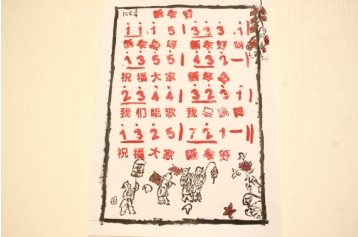 新年好
1 1 1 5 | 3 3 3 1 |
新年好呀 新年好呀
1 3 5 5 | 4 3 2 - |
祝福大家 新年好
2 3 4 4 | 3 2 3 1 |
我们唱歌 我们跳舞
1 3 2 5 | 7 2 1 - ||
祝福大家 新年好